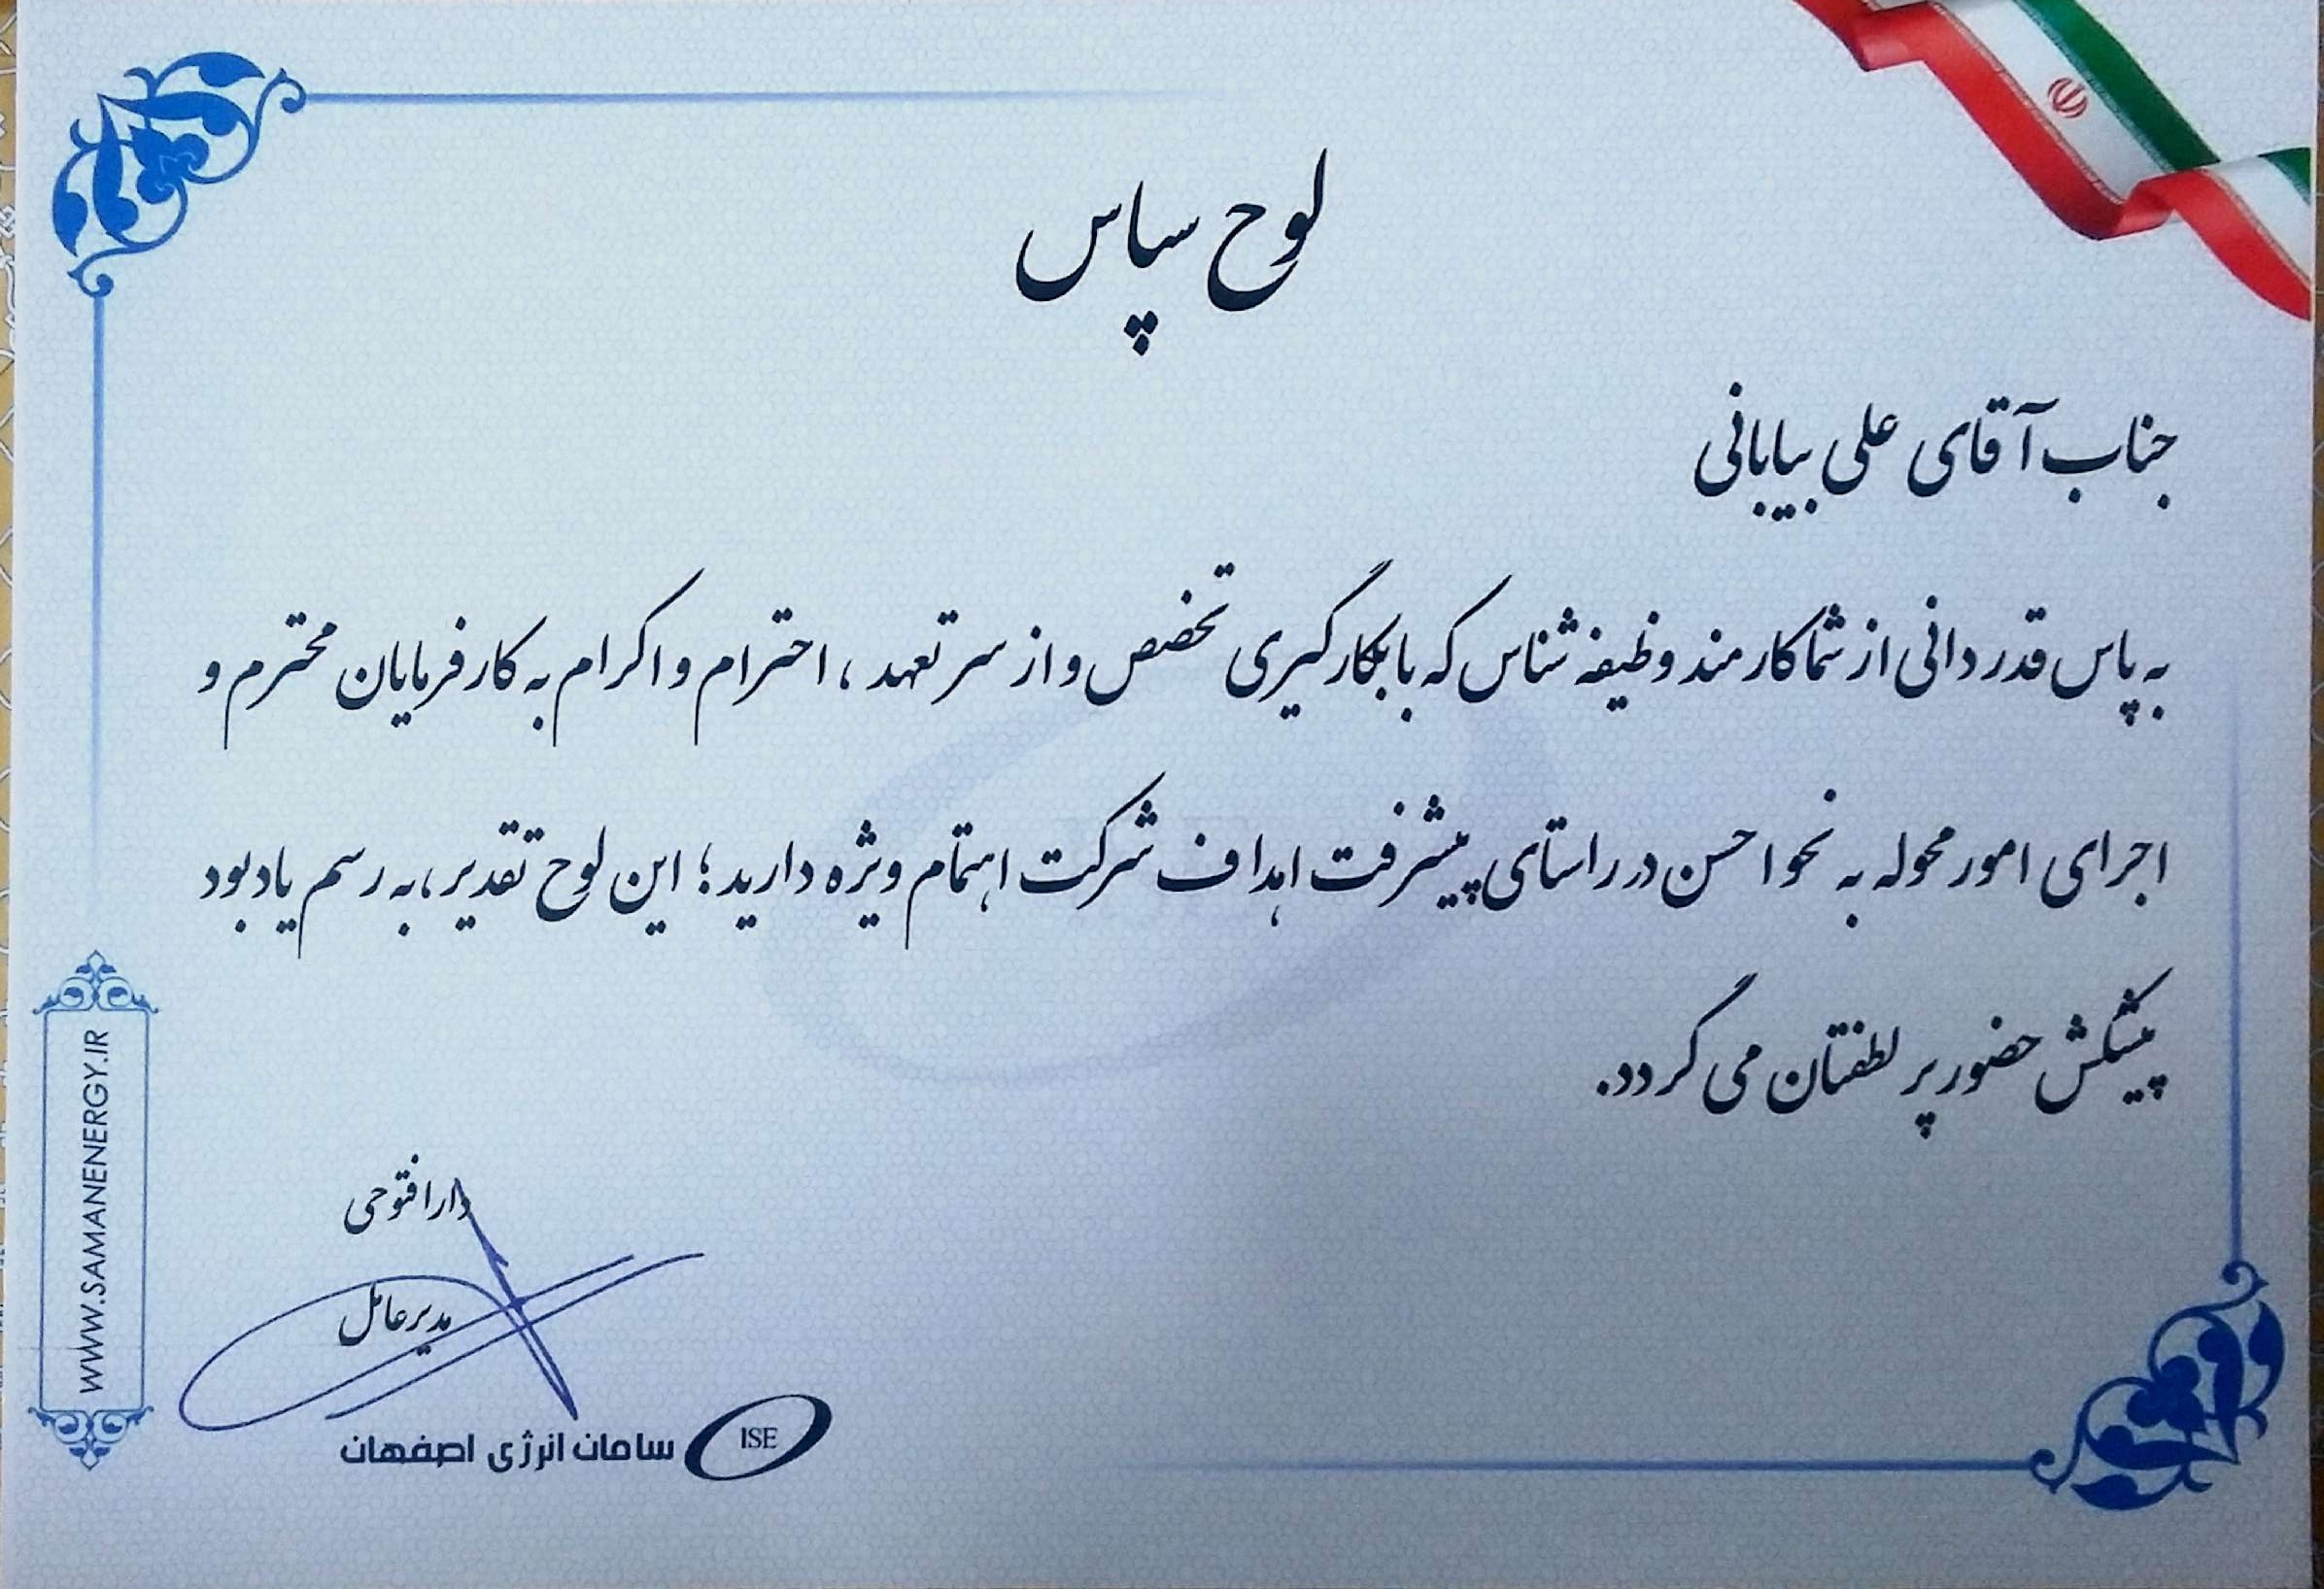 لوح سپاس
جناب آقای علی بیابانی
به پاس قدردانی از شما کارمند وظیفه شناس که با بکارگیری تخصص و از سر تعهد، احترام و اکرام به کارفرمایان محترم و
اجرای امور محوله به نحو احسن در راستای پیشرفت اهداف شرکت اهتمام ویژه دارید؛ این لوح تقدیر، به رسم یادبود
پیشکش حضور پر لطفتان می گردد.
دارا فتوحی
مدیرعامل
سامان انرژی اصفهان
ISE
WWW.SAMANENERGY.IR